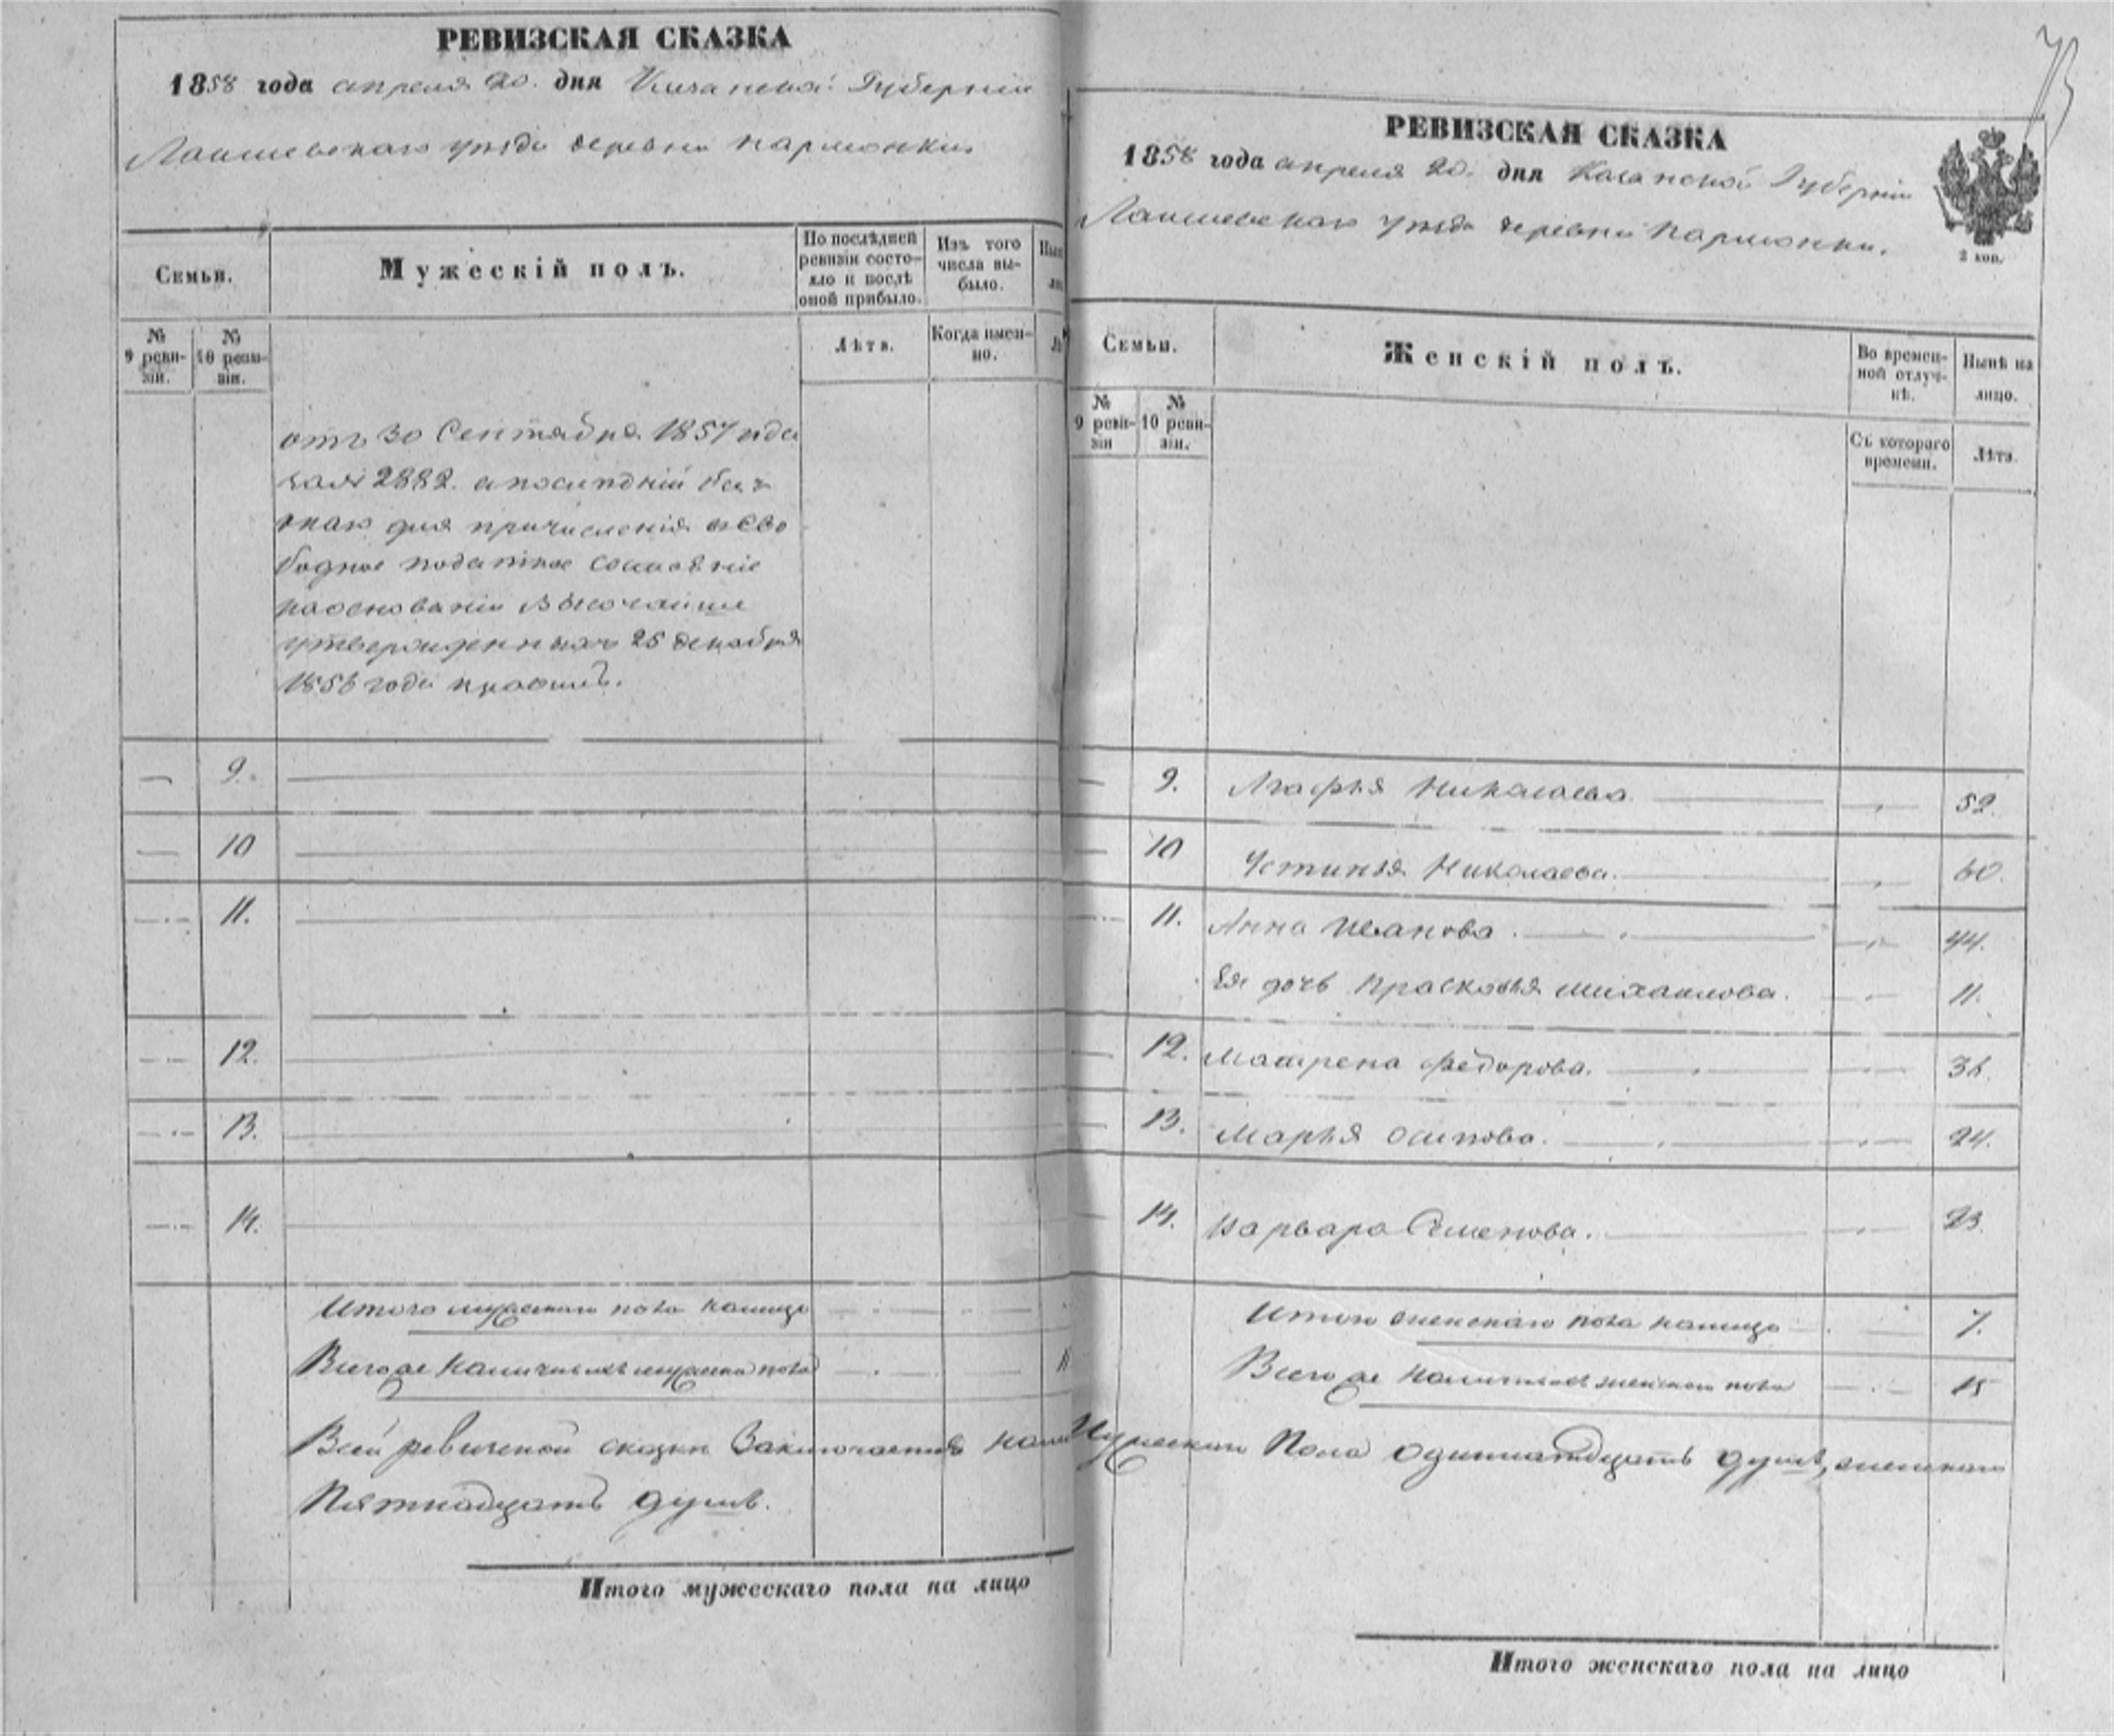 РЕВИЗСКАЯ СКАЗКА
1858 года апреля 20. дня Казанской Губернии
Лаишевскаго уезда деревни Пармонки
Семьи.
Мужескій полъ.
По послѣдней ревизіи состояло и послѣ оной прибыло.
Изъ того числа выбыло.
№ 9 ревизіи.
№ 10 ревизіи.
Лѣта.
Когда именно.
отъ 30 Сентября 1857 года
за № 2882. а последній
для причисленія въ Сво
бодное податное сословіе
на основаніи Высочайше
утвержденныхъ 25 декабря
1856 года правилъ.
9.
10
11.
12.
13.
14.
Итого мужескаго пола налицо
Всего же наличныхъ мужеска пола
Всей ревизской сказки Заключается
Пятнадцать душъ.
Итого мужескаго пола на лицо
73
РЕВИЗСКАЯ СКАЗКА
1858 года апреля 20. дня Казанской Губерніи
Лаишевскаго уезда деревни Пармонки.
2 коп.
Семьи.
Женскій полъ.
Во временной отлучкѣ.
Нынѣ на лицо.
№ 9 ревизіи
№ 10 ревизіи.
Съ котораго времени.
Лѣта.
9. Агафья Николаева 52.
10 Устинья Николаева. 60.
11. Анна Иванова. 44.
Ея дочь Прасковья Михаилова. 11.
12. Матрена Федорова. 36.
13. Марья Осипова. 24.
14. Варвара Семенова. 23.
Итого женскаго пола налицо 7.
Всего же наличныхъ женскаго пола 15
Мужескаго Пола одиннатдцать душъ, женскаго
Итого женскаго пола на лицо